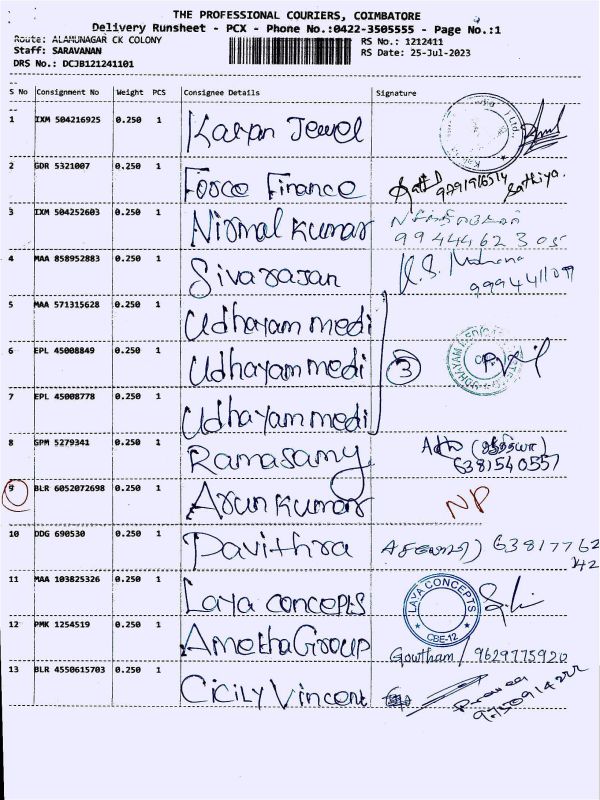 THE PROFESSIONAL COURIERS, COIMBATORE
Delivery Runsheet - PCX - Phone No.:0422-3505555 - Page No.:1
Route: ALAMUNAGAR CK COLONY RS No.: 1212411
Staff: SARAVANAN RS Date: 25-Jul-2023
DRS No.: DCJB121241101
S No Consignment No Weight PCS Consignee Details Signature
1 IXM 504216925 0.250 1 Karpan Jewel
2 GDR 5321007 0.250 1 Fosco Finance 9791916514 Sathiya.
3 IXM 504252603 0.250 1 Nirmal kumar 9944462305
4 MAA 858952883 0.250 1 Sivarasan 9994411099
5 MAA 571315628 0.250 1 Udhayam medi
6 EPL 45008849 0.250 1 Udhayam medi 3
7 EPL 45008778 0.250 1 Udhayam medi
8 GPM 5279341 0.250 1 Ramasamy 6381540557
9 BLR 6052072698 0.250 1 Arun kumar NP
10 DDG 690530 0.250 1 Pavithra 6381776242
11 MAA 103825326 0.250 1 Laya concepts LAYA CONCEPTS CBE-12
12 PMK 1254519 0.250 1 Amekha Group Gowtham / 9629775920
13 BLR 4550615703 0.250 1 Cicily Vincent